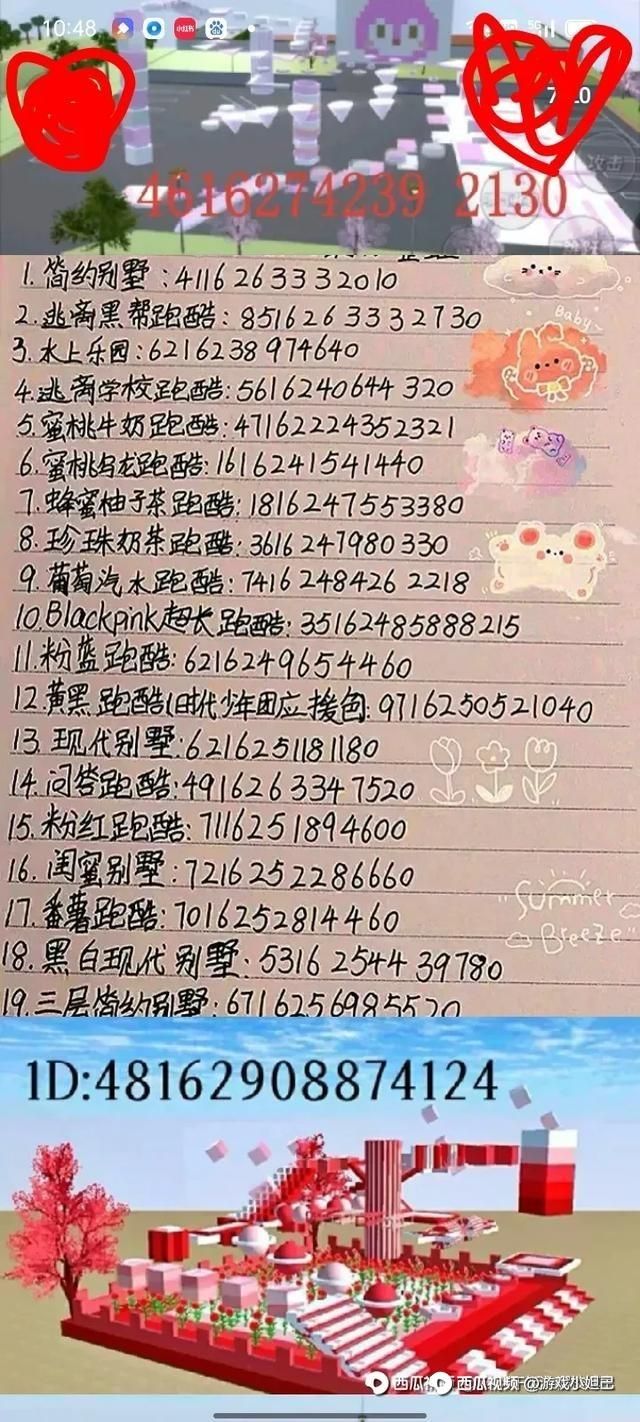 10:48
小红书
5G
攻击
4616274239 2130
1.简约别墅:4116263332010
2.逃离黑帮跑酷:8516263332730
Baby~
3.水上乐园:6216238974640
4.逃离学校跑酷:5616240644320
5.蜜桃牛奶跑酷:47162224352321
6.蜜桃乌龙跑酷:1616241541440
7.蜂蜜柚子茶跑酷:1816247553380
8.珍珠奶茶跑酷:3616247980330
9.葡萄汽水跑酷:74162484262218
10.Blackpink超长跑酷:35162485888215
11.粉蓝跑酷:6216249654460
12.黄黑跑酷(时代少年团应援色:9716250521040
13.现代别墅:6216251181180
14.问答跑酷:4916263347520
15.粉红跑酷:7116251894600
16.闺蜜别墅:7216252286660
Summer
17.番薯跑酷:7016252814460
Breeze
18.黑白现代别墅:5316254439780
19.三层简约别墅:6716256985520
1D:48162908874124
西瓜视频 西瓜视频@游戏小妲己